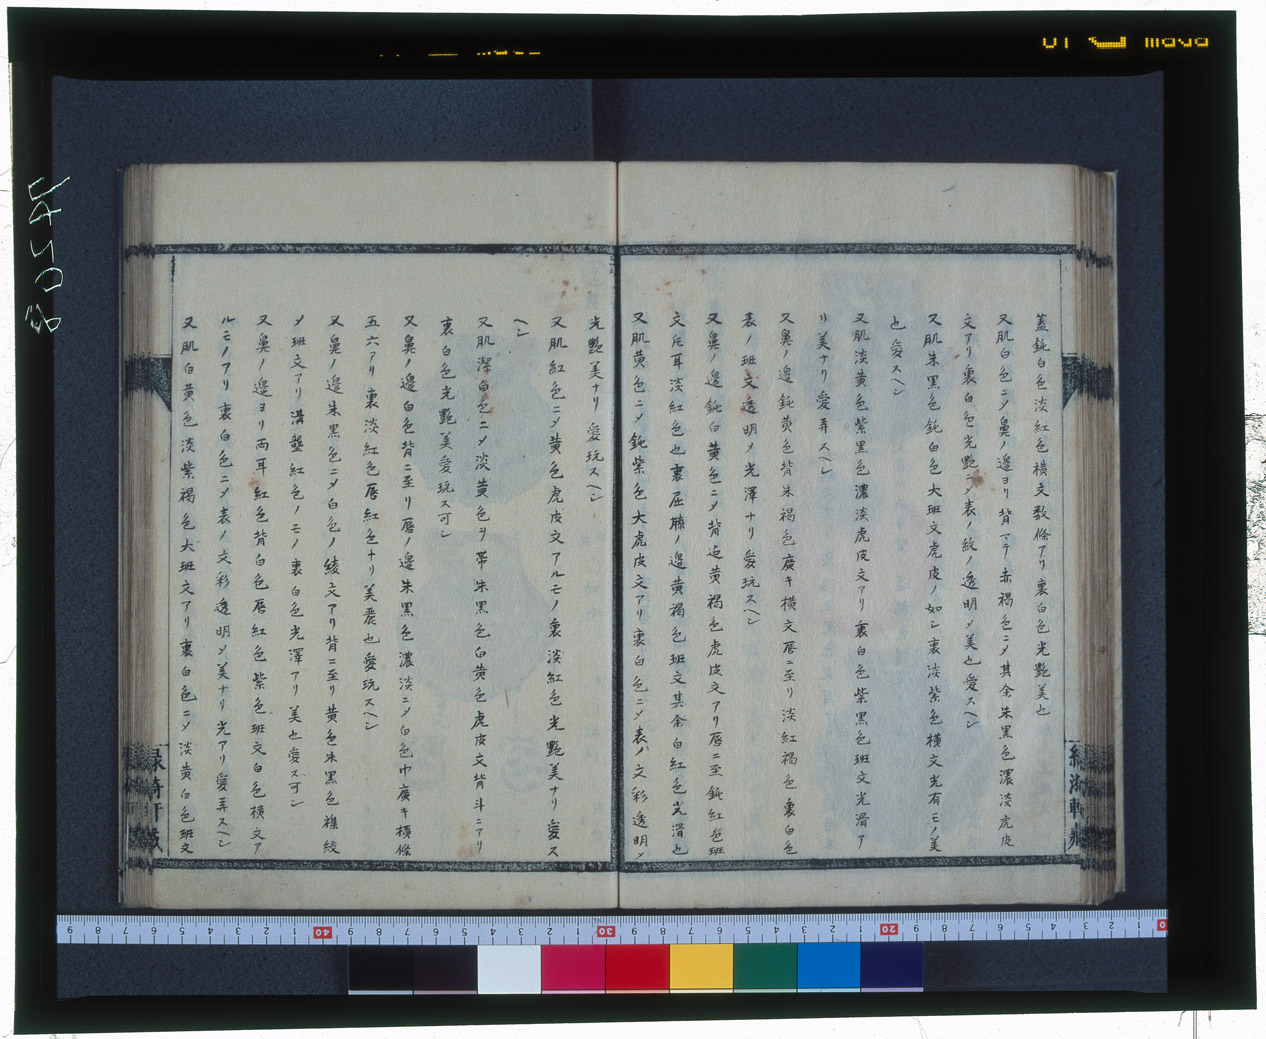 蓋鈍白色淡紅色横文数條アリ裏白色光艶美也
又肌白色ニメ鼻ノ邉ヨリ背マテ赤褐色ニメ其余朱黒色濃淡虎皮
文アリ裏白色光艶ニメ表ノ紋ノ透明メ美也愛スヘシ
又肌朱黒色鈍白色大班文虎皮ノ如シ裏淡紫色横文光有モノ美
也愛スヘシ
又肌淡黄色紫黒色濃淡虎皮文アリ裏白色紫黒色班文光滑ア
リ美ナリ愛弄スヘシ
又鼻ノ邉鈍黄色背朱褐色廣キ横文唇ニ至リ淡紅褐色裏白色
表ノ班文透明メ光澤ナリ愛玩スヘシ
又鼻ノ邉鈍白黄色ニメ背迠黄褐色虎皮文アリ唇ニ至鈍紅色班
文左耳淡紅色也裏屈膝ノ邉黄褐色班文其余白紅色光滑也
又肌黄色ニメ鈍紫色大虎皮文アリ裏白色ニメ表ノ文彩透明メ
光艶美ナリ愛玩スヘシ
又肌紅色ニメ黄色虎皮文アルモノ裏淡紅色光艶美ナリ愛ス
ヘシ
又肌潔白色ニメ淡黄色ヲ帯朱黒色白黄色虎皮文背斗ニアリ
裏白色光艶美愛玩ス可シ
又鼻ノ邉白色背ニ至リ唇ノ邉朱黒色濃淡ニメ白色巾廣キ横條
五六アリ裏淡紅色唇紅色ナリ美麗也愛玩スヘシ
又鼻ノ邉朱黒色ニメ白色ノ綾文アリ背ニ至リ黄色朱黒色襍綾
メ班文アリ溝壑紅色ノモノ裏白色光澤アリ美也愛ス可シ
又鼻ノ邉ヨリ両耳紅色背白色唇紅色紫色班文白色横文ア
ルモノアリ裏白色ニメ表ノ文彩透明メ美ナリ光アリ愛弄スヘシ
又肌白黄色淡紫褐色大班文アリ裏白色ニメ淡黄白色班文